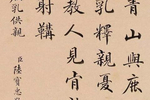 青山與鹿
乳釋親憂
教人見肯
射韝
乳供親
臣陸寶忠